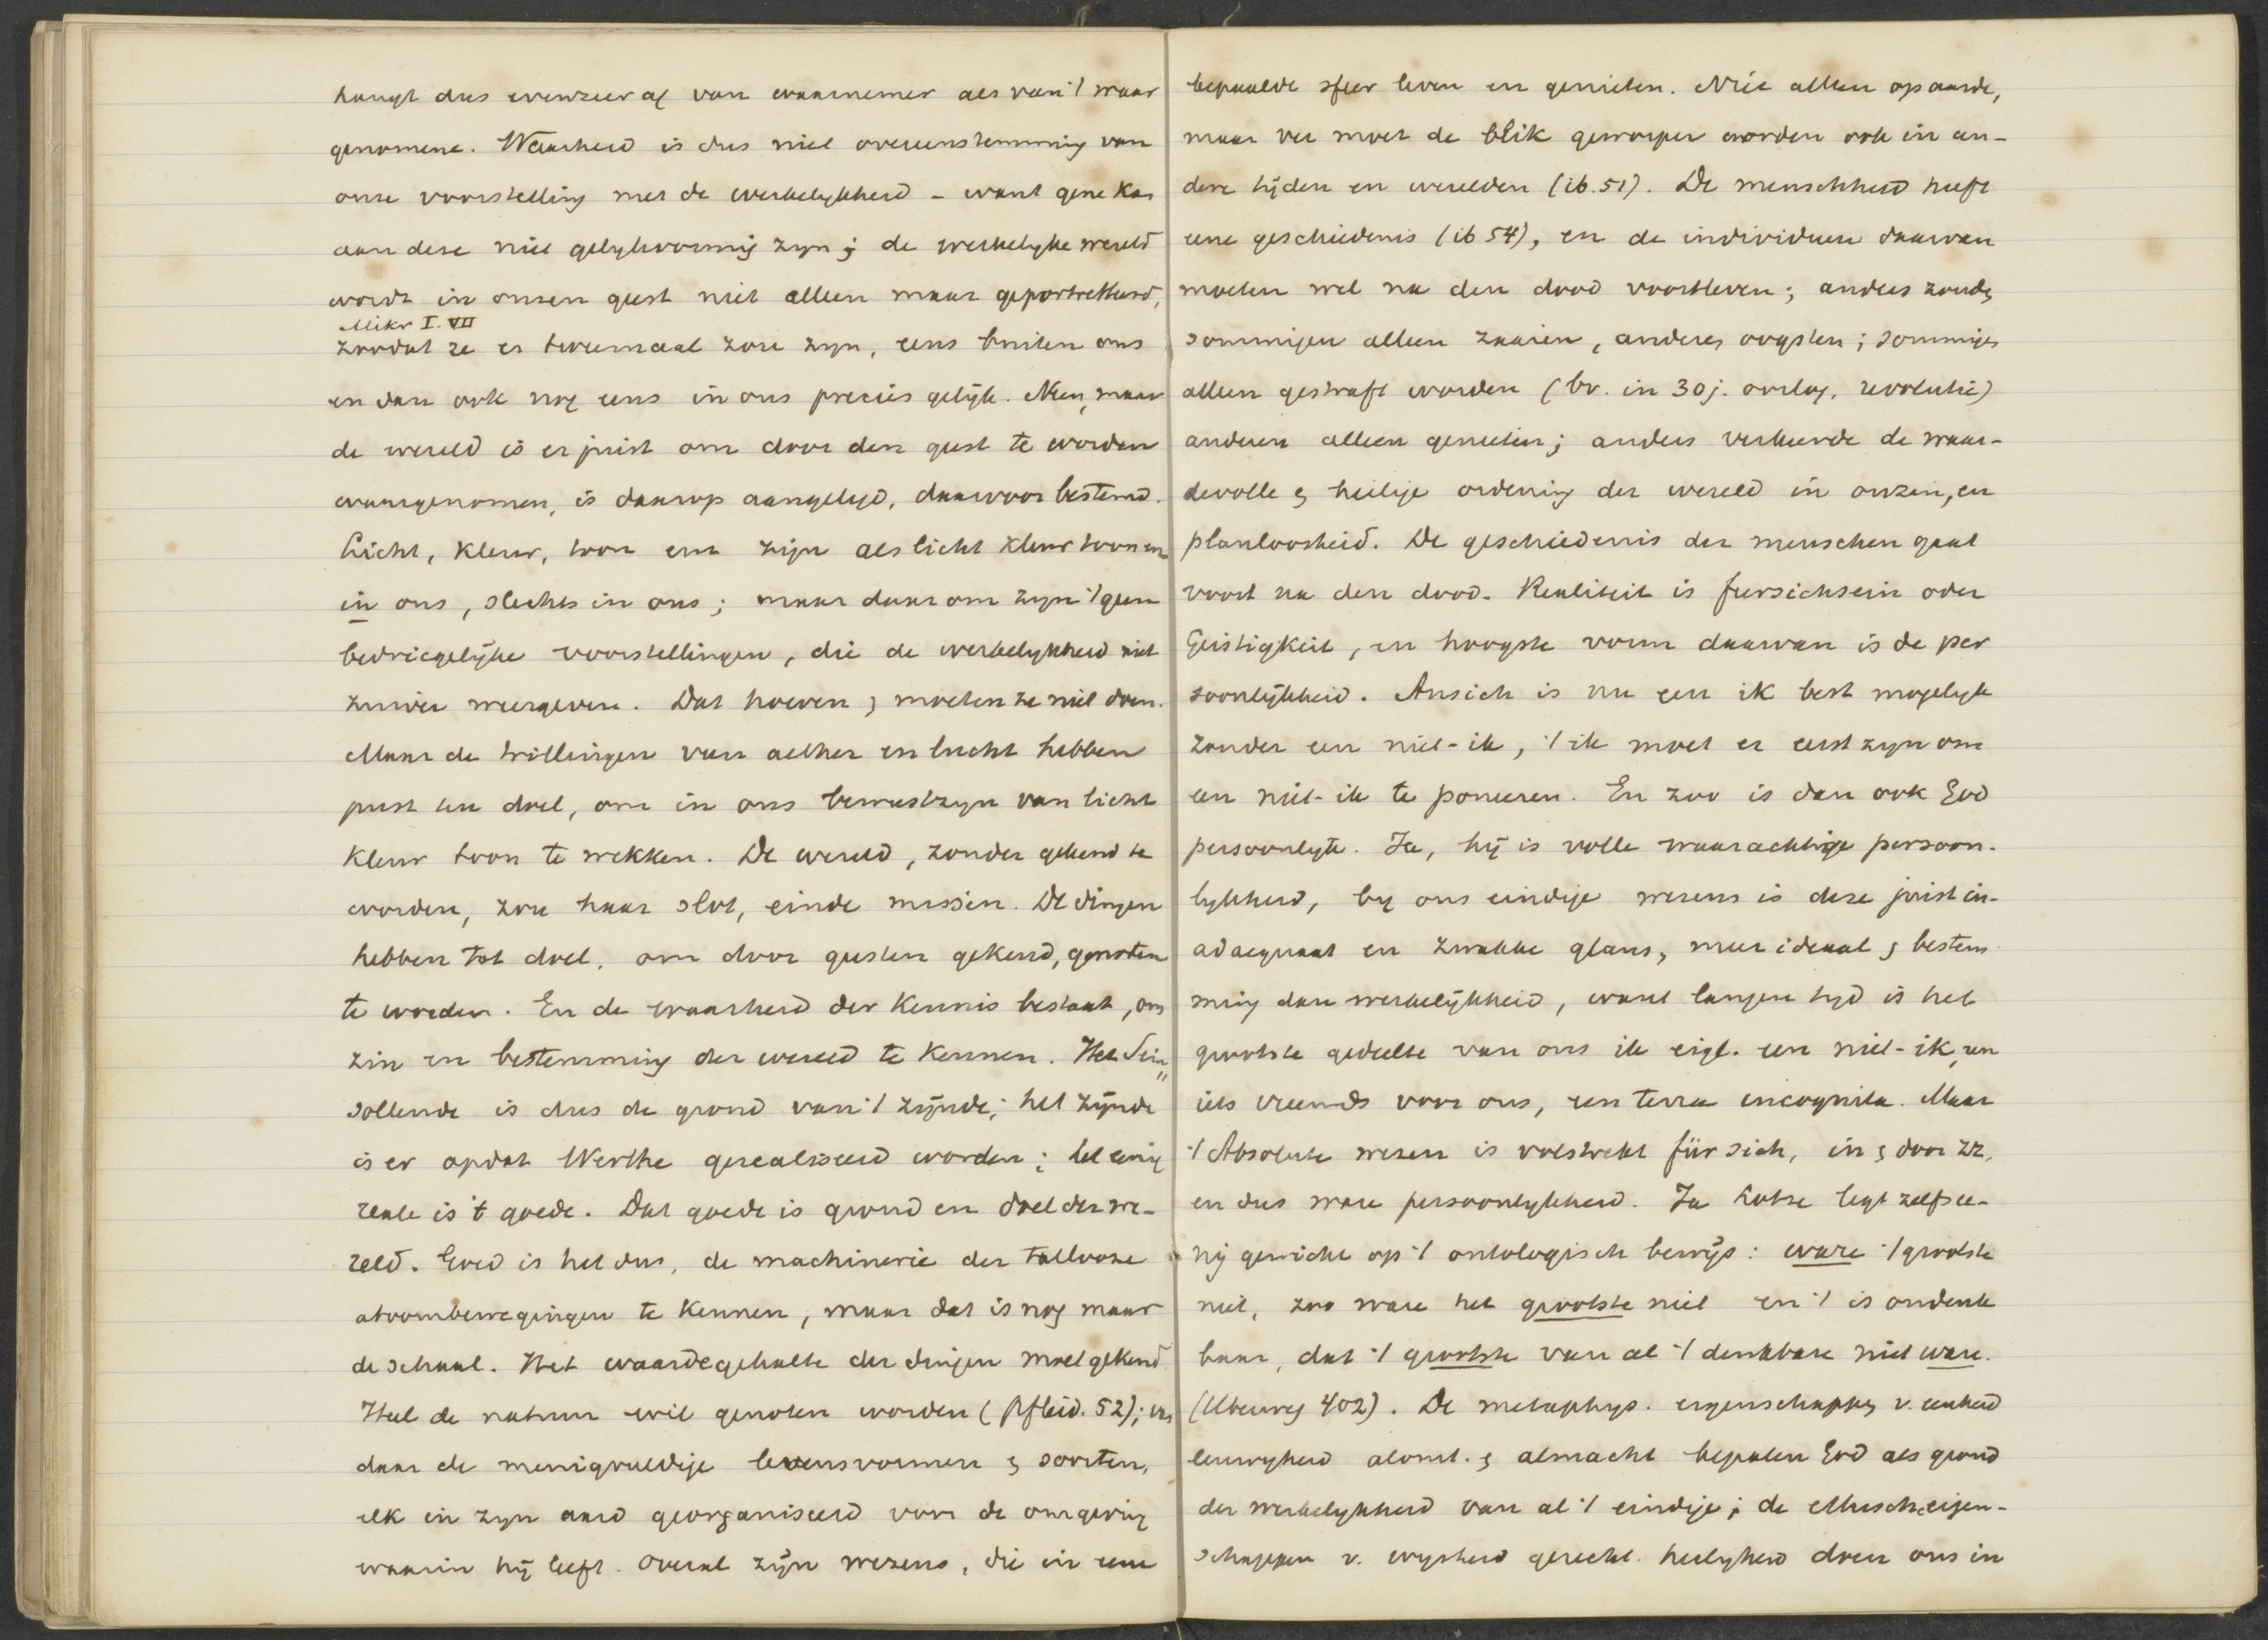 hangt dus evenzeer af van waarnemer als van 't waar
genomene. Waarheid is dus niet overeenstemming van
onze voorstelling met de werkelykheid – want gene kan
aan deze niet gelykvormig zyn; de werkelyke wereld
wordt in onzen geest niet alleen maar geportretteerd,
Mikr I. VII
zoodat ze er tweemaal zou zyn, eens buiten ons
en dan ook nog eens in ons precies gelijk. Neen, maar
de wereld is er juist om door den geest te worden
waargenomen, is daarop aangelegd, daarvoor bestemd.
Licht, kleur, toon enz zijn als licht kleur toon enz
in ons, slechts in ons; maar daarom zyn 't geen
bedriegelijke voorstellingen, die de werkelykheid niet
zuiver weergeven. Dat hoeven & moeten ze niet doen.
Maar de trillingen van aether en lucht hebben
juist ten doel, om in ons bewustzyn van licht
kleur toon te wekken. De wereld, zonder gekend te
worden, zou haar slot, einde missen. De dingen
hebben tot doel, om door geesten gekend, genoten
te worden. En de waarheid der kennis bestaat, om
zin en bestemming der wereld te kennen. Het Sein
sollende is dus de grond van 't zijnde; het zijnde
is er opdat Werthe gerealiseerd worden; het eenig
reale is 't goede. Dat goede is grond en doel der we-
reld. Goed is het dus, de machinerie der tallooze
atoombewegingen te kennen, maar dat is nog maar
de schaal. Het waardegehalte der dingen moet gekend
Heel de natuur wil genoten worden (Pfleid. 52);
daar de menigvuldige levensvormen & soorten,
elk in zyn aard georganiseerd voor de omgeving
waarin hij leeft. Overal zijn wezens, die in eene
bepaalde sfeer leven en genieten. Niet alleen op aarde,
maar ver moet de blik geworpen worden ook in an-
dere tijden en werelden (ib. 51). De menschheid heeft
eene geschiedenis (ib 54), en de individuen daarvan
moeten wel na den dood voortleven; anders zouden
sommigen alleen zaaien, anderen oogsten; sommigen
alleen gestraft worden (bv. in 30 j. oorlog, revolutie)
anderen alleen genieten; anders verkeerde de waar-
devolle & heilige ordening der wereld in onzin, en
planloosheid. De geschiedenis der menschen gaat
voort na den dood. Realiteit is fursichsein oder
Geistigkeit, en hoogste vorm daarvan is de per
soonlijkheid. Ansich is nu een ik best mogelyk
zonder een niet-ik, 't ik moet er eerst zyn om
een niet-ik te poneeren. En zoo is dan ook God
persoonlyk. Ja, hij is volle waarachtige persoon-
lykheid, by ons eindige wezens is deze juist in-
adaequaat en zwakke glans, meer ideaal & bestem
ming dan werkelijkheid, want langen tyd is het
grootste gedeelte van ons ik eigl. een niet-ik, en
iets vreemds voor ons, een terra incognita. Maar
't Absolute wezen is volstrekt für sich, in & door zz,
en dus ware persoonlykheid. Ja Lotze legt zelfs ee-
nij gewicht op 't ontologisch bewijs: ware 't grootste
niet, zoo ware het grootste niet en 't is ondenk
baar, dat 't grootste van al 't denkbare niet ware.
(Uberweg 402). De metaphys. eigenschappen v. eenheid
eeuwigheid alomt. & almacht bepalen God als grond
der werkelykheid van al 't eindige; de ethische eigen-
schappen v. wysheid gerecht. heiligheid doen ons in